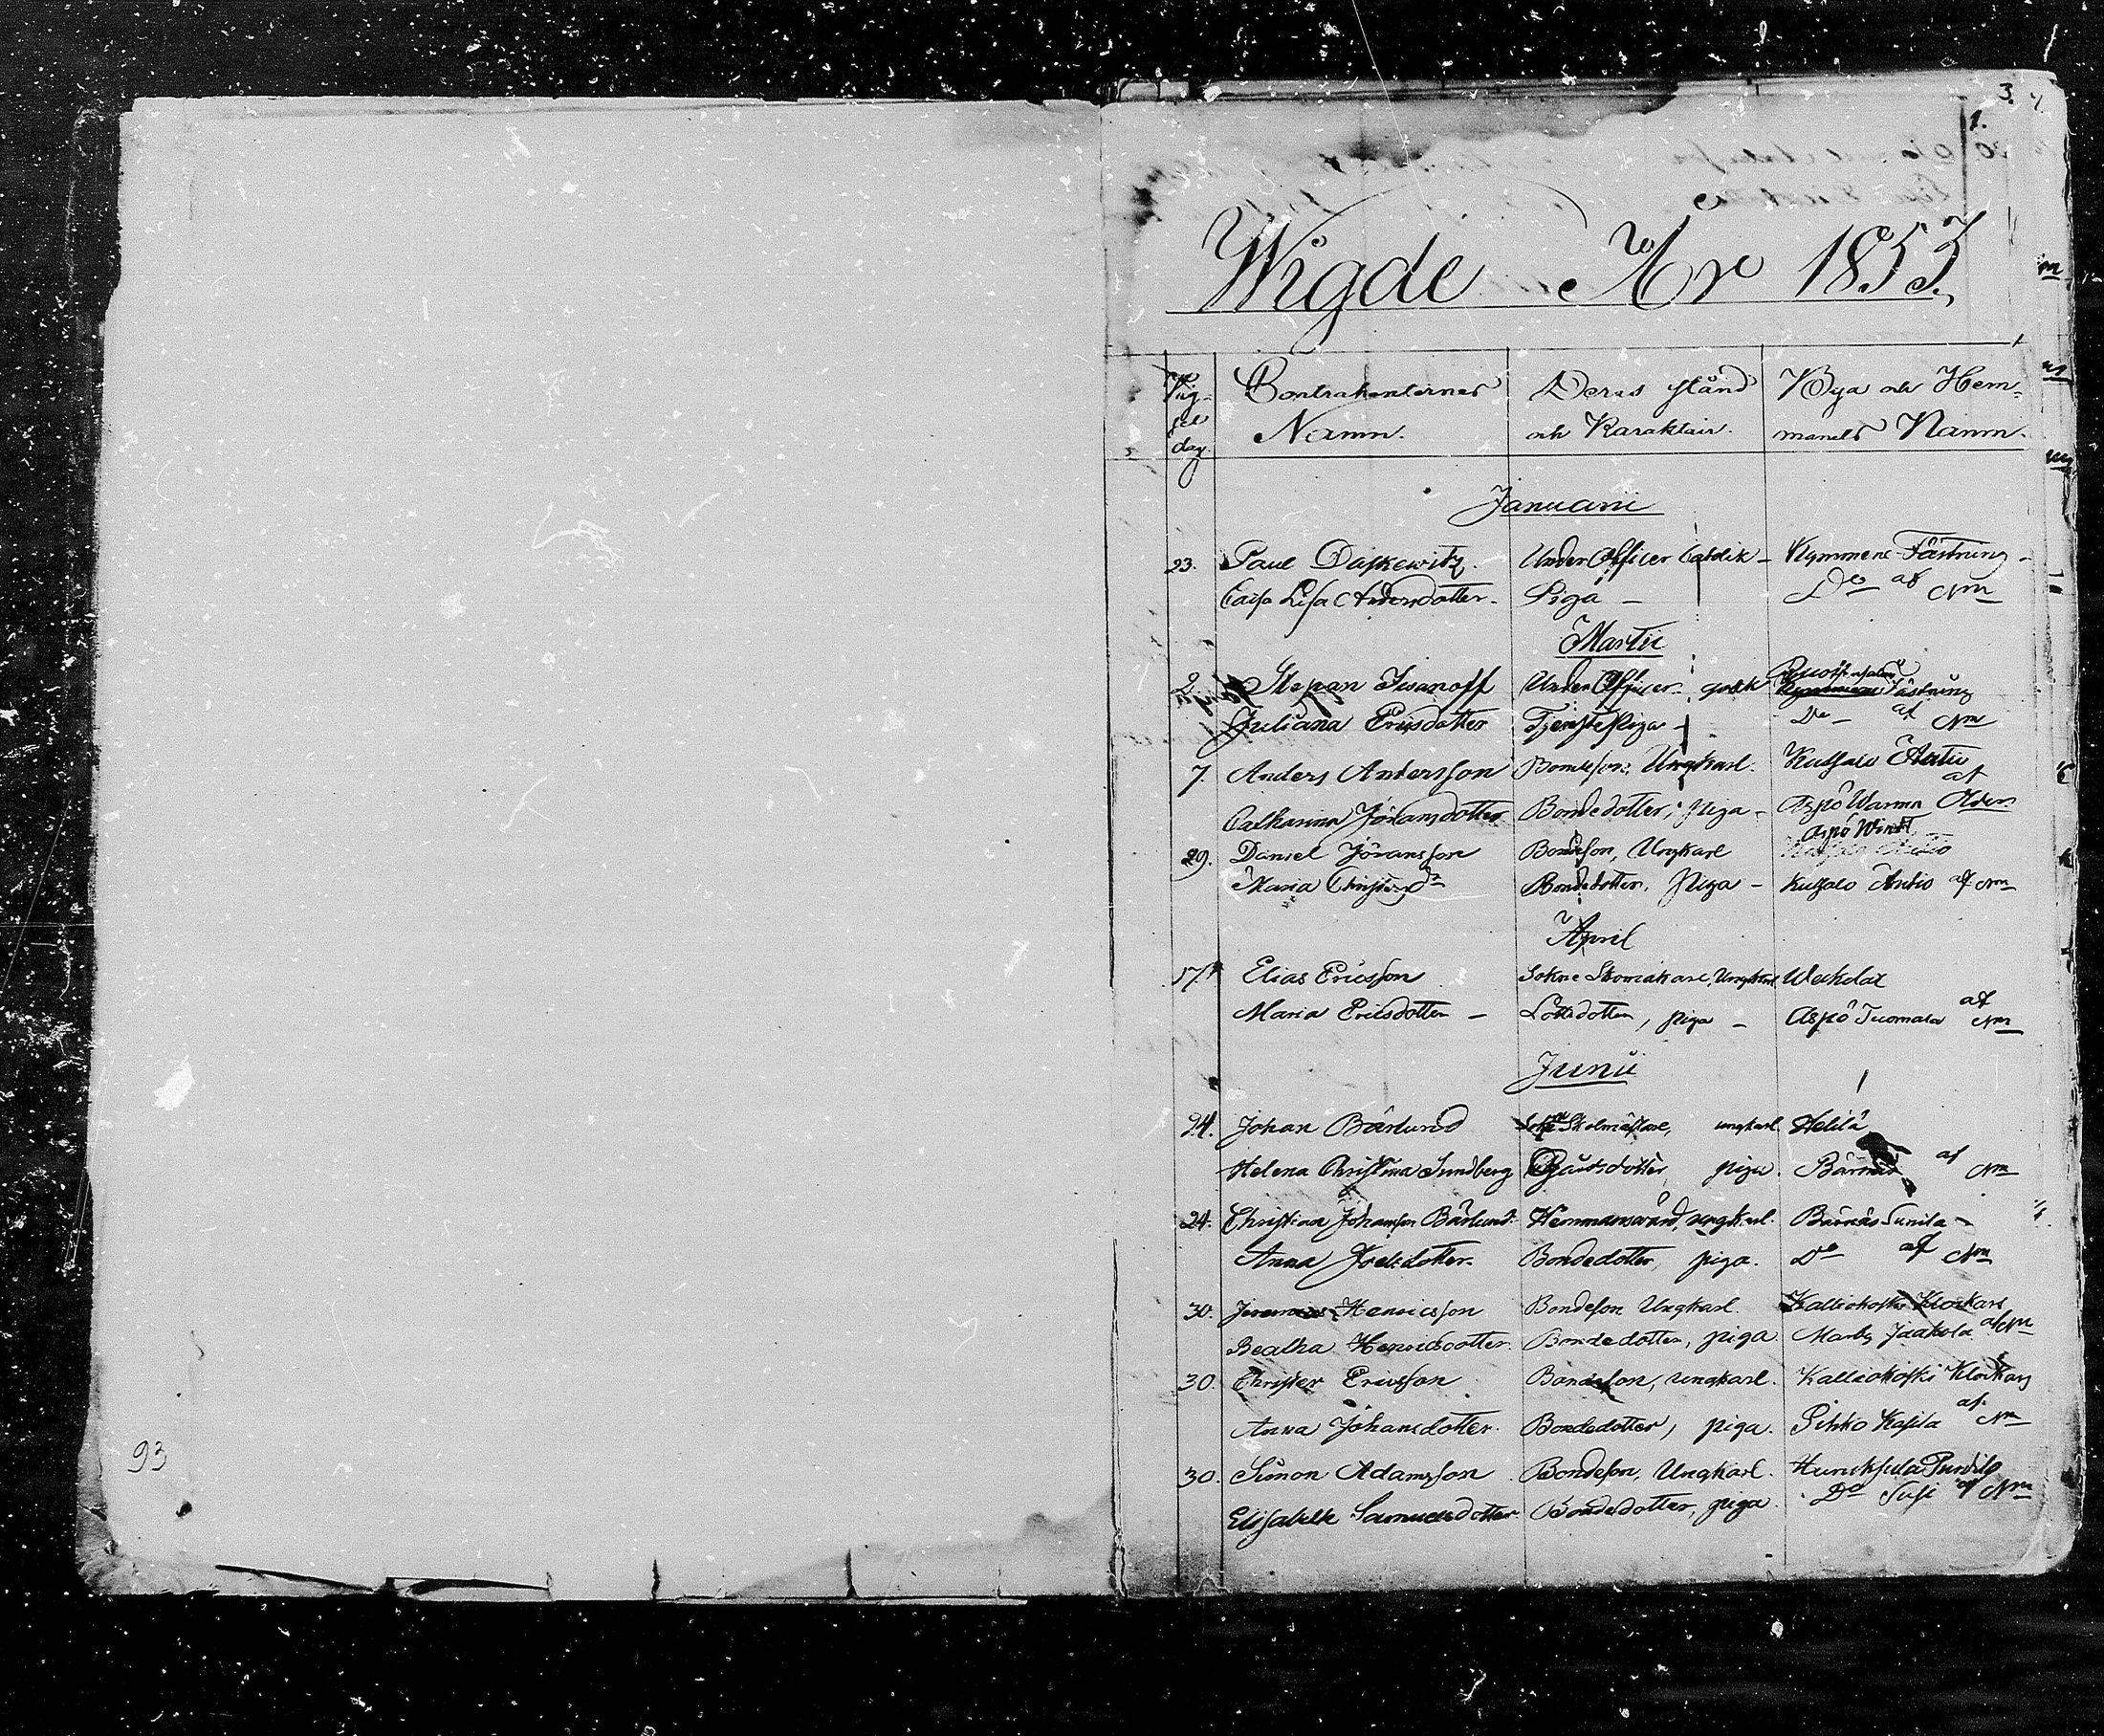 3.
1.
Wigde År 1853.
Vig-
sel
dag.
Contrahenternes
Namn.
Deras stånd
och Karaktair.
Bya och Hem-
manets Namn.
Januarii
23. Paul Daskewitz. Under Officer Catolik – Kymmene Fästning –
Caisa Lisa Andersdotter. Piga – Do af Nm
Martii
2 Stepan Iwanoff Under Officer grek Fästning
Juliana Ericsdotter Tjenste Piga – Do – af Nm
7. Anders Andersson Bondeson, Ungkarl. Kutsalo
Catharina Jöransdotter Bondedotter, piga – Aspö Warma af
29. Daniel Jöransson Bondeson, Ungkarl Aspö
Maria Christersdr Bondedotter, Piga – Kutsalo Antio af Nm
April
17. Elias Ericsson Sokne Skomakare, Ungkarl
Maria Ericsdotter – Lottsdotter, piga – Aspö Tuomala af Nm
Junii
24. Johan Bärlund Sokne Skolmästare, ungkarl Helilä
Helena Christina Sundberg piga. af Nm
24. Christian Johansson Bärlund. ungkarl. Bärnäs Sunila –
Anna Joelsdotter. Bondedotter, piga. Do af Nm
30. Jeremias Henricsson Bondeson Ungkarl. Kalliokoski Klockars
Beatha Henricsdotter. Bondedotter, piga Marby Jaakola af Nm
30. Christer Ericsson Bondeson, ungkarl. Kalliokoski Klockars
Anna Johansdotter. Bondedotter, piga. Pihko Kasila af Nm
30. Simon Adamsson Bondeson, Ungkarl. Hurukselа
Elisabeth Samuelsdotter. Bondedotter, piga. Do Susi af Nm
93